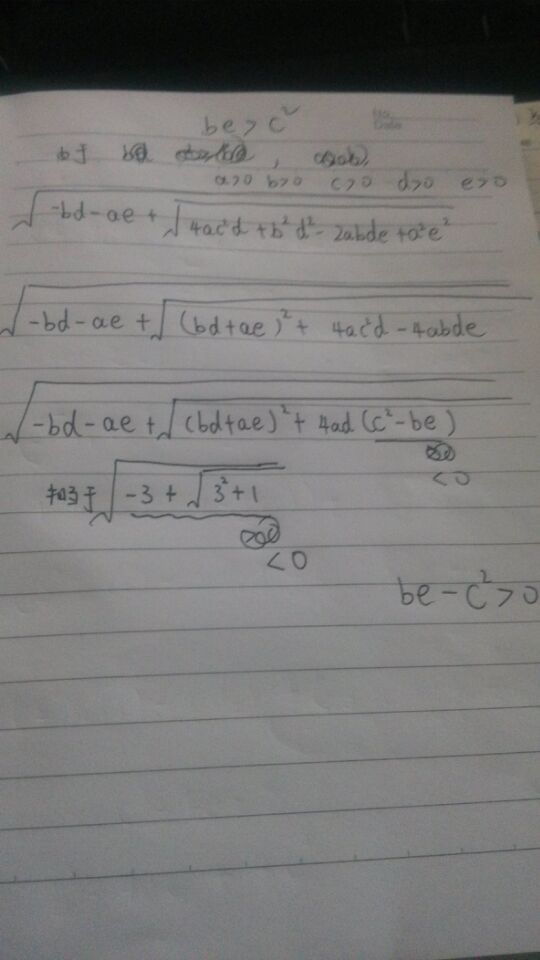 be > c²
No.
Date
由于
a>0 b>0 c>0 d>0 e>0
√(-bd-ae+√(4ac²d+b²d²-2abde+a²e²))
√(-bd-ae+√((bd+ae)²+4ac²d-4abde))
√(-bd-ae+√((bd+ae)²+4ad(c²-be)))
<0
相当于√(-3+√(3²+1))
<0
be-c²>0